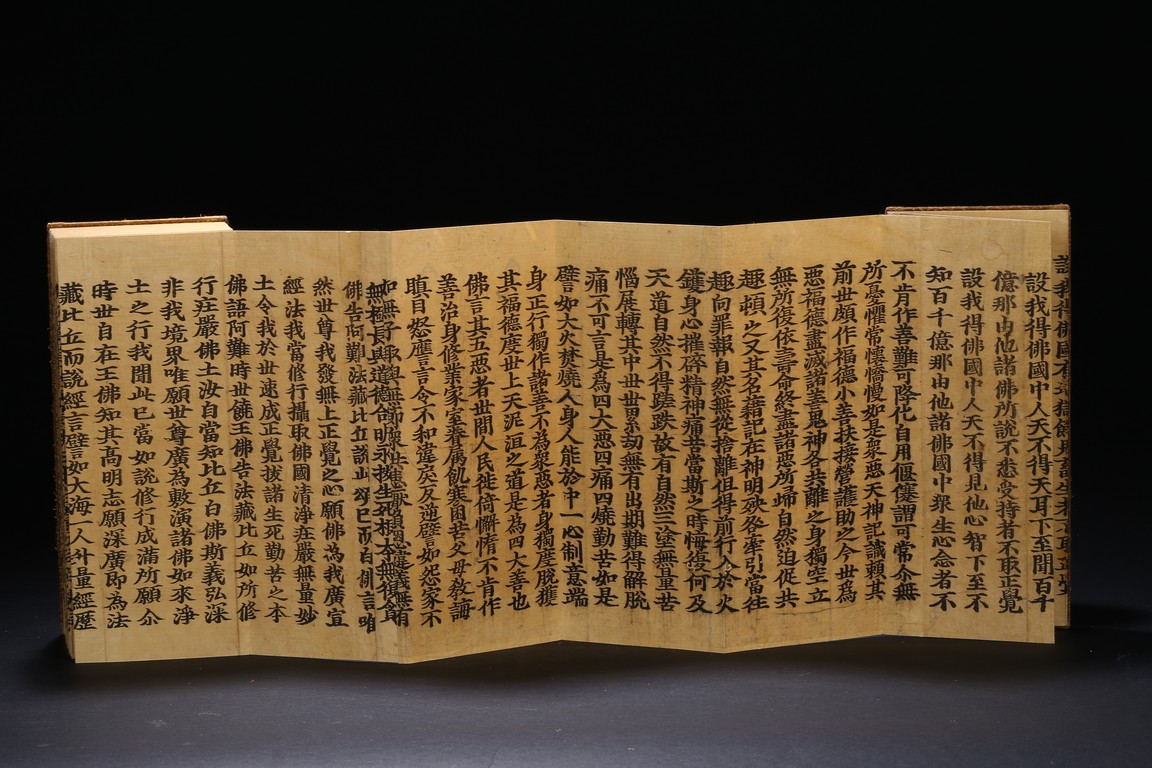 設我得佛國有地獄餓鬼畜生者不取正覺
設我得佛國中人天不得天耳下至聞百千
億那由他諸佛所說不悉受持者不取正覺
設我得佛國中人天不得見他心智下至不
知百千億那由他諸佛國中衆生心念者不
不肯作善難可降化自用偃謇謂可常尒無
所憂懼常懷憍慢如是衆惡天神記識賴其
前世頗作福德小善扶接營護助之今世為
惡福德盡滅諸善鬼神各共離之身獨空立
無所復依壽命終盡諸惡所歸自然迫促共
趣頓之又其名藉記在神明殃咎牽引當往
趣向罪報自然無從捨離但得前行入於火
鑊身心摧碎精神痛苦當斯之時悔復何及
天道自然不得蹉跌故有自然三塗無量苦
惱展轉其中世世累劫無有出期難得解脫
痛不可言是為四大惡四痛四燒勤苦如是
譬如大火焚燒人身人能於中一心制意端
身正行獨作諸善不為衆惡者身獨度脫獲
其福德度世上天泥洹之道是為四大善也
佛言其五惡者世間人民徙倚懈惰不肯作
善治身修業家室眷属飢寒困苦父母教誨
瞋目怒譍言令不和違戾反逆譬如怨家不
如無子取與無節
無極長與道德合明永拔生死根本無復貪
佛告阿難法藏比丘說此頌已而白佛言唯
然世尊我發無上正覺之心願佛為我廣宣
經法我當修行攝取佛國清淨莊嚴無量妙
土令我於世速成正覺拔諸生死勤苦之本
佛語阿難時世饒王佛告法藏比丘如所修
行莊嚴佛土汝自當知比丘白佛斯義弘深
非我境界唯願世尊廣為敷演諸佛如來淨
土之行我聞此已當如說修行成滿所願尒
時世自在王佛知其高明志願深廣即為法
藏比丘而說經言譬如大海一人升量經歷